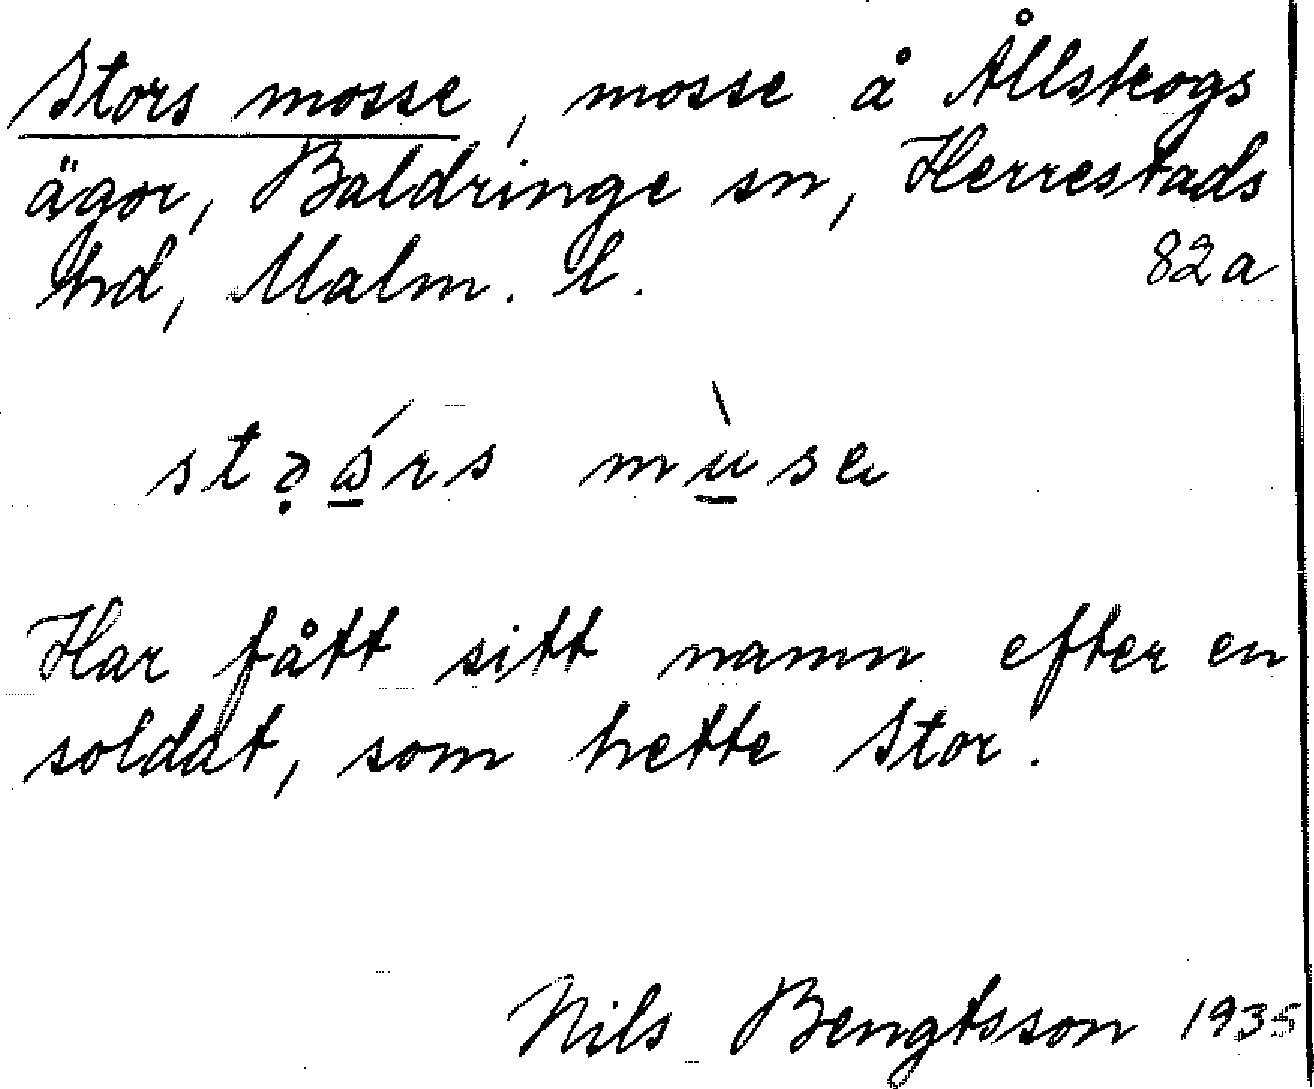 Stors mosse, mosse å Ållskogs
ägor, Baldringe sn, Herrestads
hrd, Malm. l. 82a
Har fått sitt namn efter en
soldat, som hette Stor.
Nils Bengtsson 1935